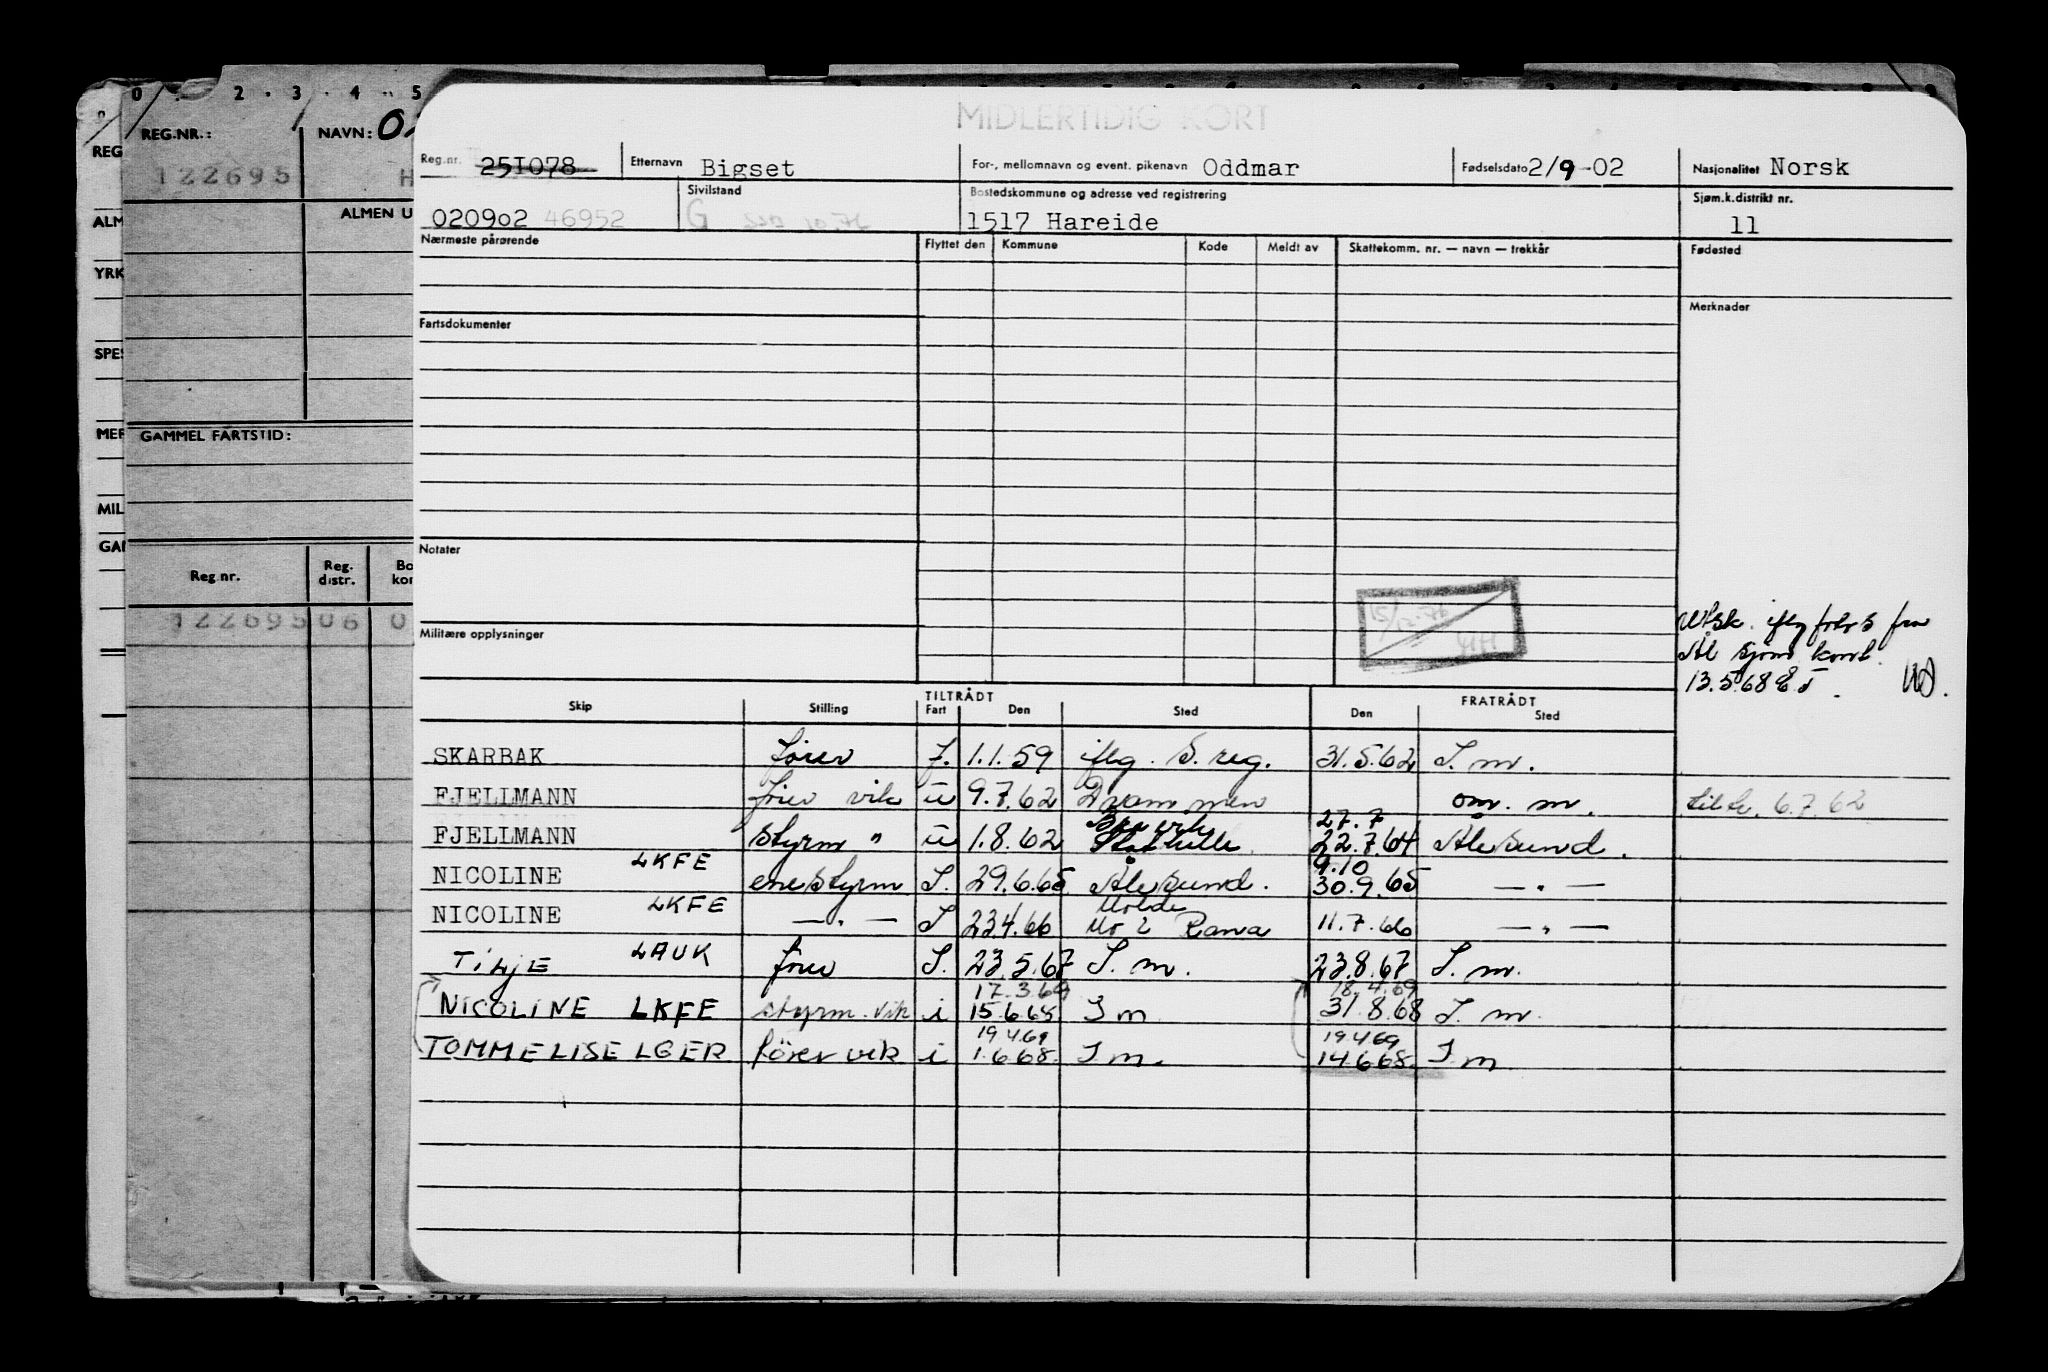 0 2 . 3 . 4 . 5
REG.NR.: NAVN:
122695 H
ALMEN U
GAMMEL FARTSTID:
Reg.nr. Reg. distr. Bo kor
122695 06 0
REG
ALM
YRK
SPES
MER
MIL
GAM
MIDLERTIDIG KORT
Reg.nr. 251078 Etternavn Bigset For-, mellomnavn og event. pikenavn Oddmar Fødselsdato 2/9-02 Nasjonalitet Norsk
020902 46952 Sivilstand G Bostedskommune og adresse ved registrering 1517 Hareide Sjøm.k.distrikt nr. 11
Nærmeste pårørende Flyttet den Kommune Kode Meldt av Skattekomm. nr. — navn — trekkår Fødested
Merknader
Fartsdokumenter
Notater
Militære opplysninger
Utsk. iflg frbr s fra
Ål sjøm kont.
13.5.68
TILTRÅDT FRATRÅDT
Skip Stilling Fart Den Sted Den Sted
SKARBAK fører J. 1.1.59 iflg. S. reg. 31.5.62 S. m.
FJELLMANN fører vik u 9.7.62 Drammen om. m. tiltr. 6.7.62
27.7
FJELLMANN styrm " u 1.8.62 22.7.64 Ålesund.
9.10
NICOLINE LKFE enestyrm S. 29.6.65 Ålesund. 30.9.65 — " —
Molde
NICOLINE LKFE — " — S 23.4.66 Mo i Rana 11.7.66 — " —
TILJE LAUK fører S. 23.5.67 S. m. 23.8.67 S. m.
17.3.69 18.4.69
NICOLINE LKFE styrm. vik i 15.6.68 S m 31.8.68 S. m.
19.4.69 19.4.69
TOMMELISE LGER fører vik i 1.6.68. S m. 14.6.68. S m